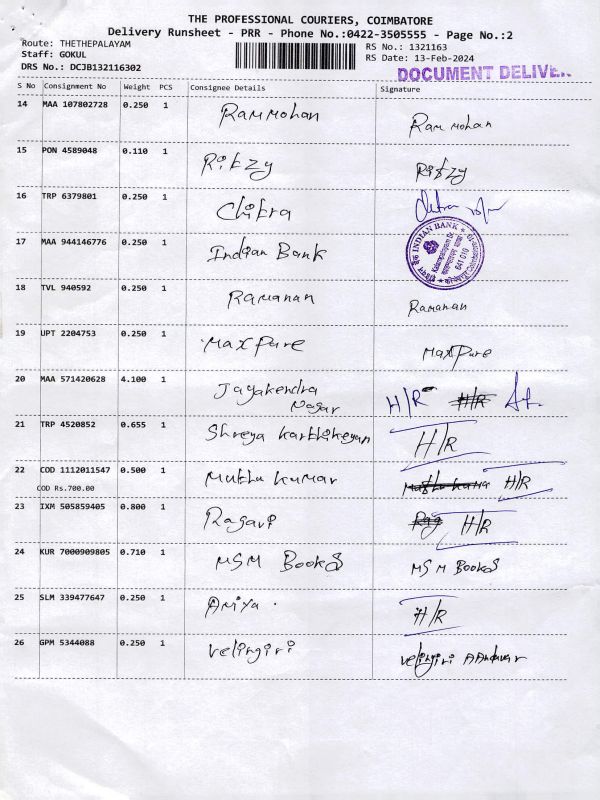 THE PROFESSIONAL COURIERS, COIMBATORE
Delivery Runsheet - PRR - Phone No.:0422-3505555 - Page No.:2
Route: THETHEPALAYAM
Staff: GOKUL
DRS No.: DCJB132116302
RS No.: 1321163
RS Date: 13-Feb-2024
DOCUMENT DELIVE
S No Consignment No Weight PCS Consignee Details Signature
14 MAA 107802728 0.250 1 Rammohan Rammohan
15 PON 4589048 0.110 1 Ritzy Ritzy
16 TRP 6379801 0.250 1 Chitra
17 MAA 944146776 0.250 1 Indian Bank INDIAN BANK 641 010
18 TVL 940592 0.250 1 Ramanan Ramanan
19 UPT 2204753 0.250 1 Maxpure Maxpure
20 MAA 571420628 4.100 1 Jayakendra H/R H/R
Nagar
21 TRP 4520852 0.655 1 Shreya karthikeyan H/R
22 COD 1112011547 0.500 1 Muthu kumar H/R
COD Rs.700.00
23 IXM 505859405 0.800 1 Ragavi Rag H/R
24 KUR 7000909805 0.710 1 MSM Books MSM Books
25 SLM 339477647 0.250 1 Ariya. H/R
26 GPM 5344088 0.250 1 velingiri velingiri AAndavar